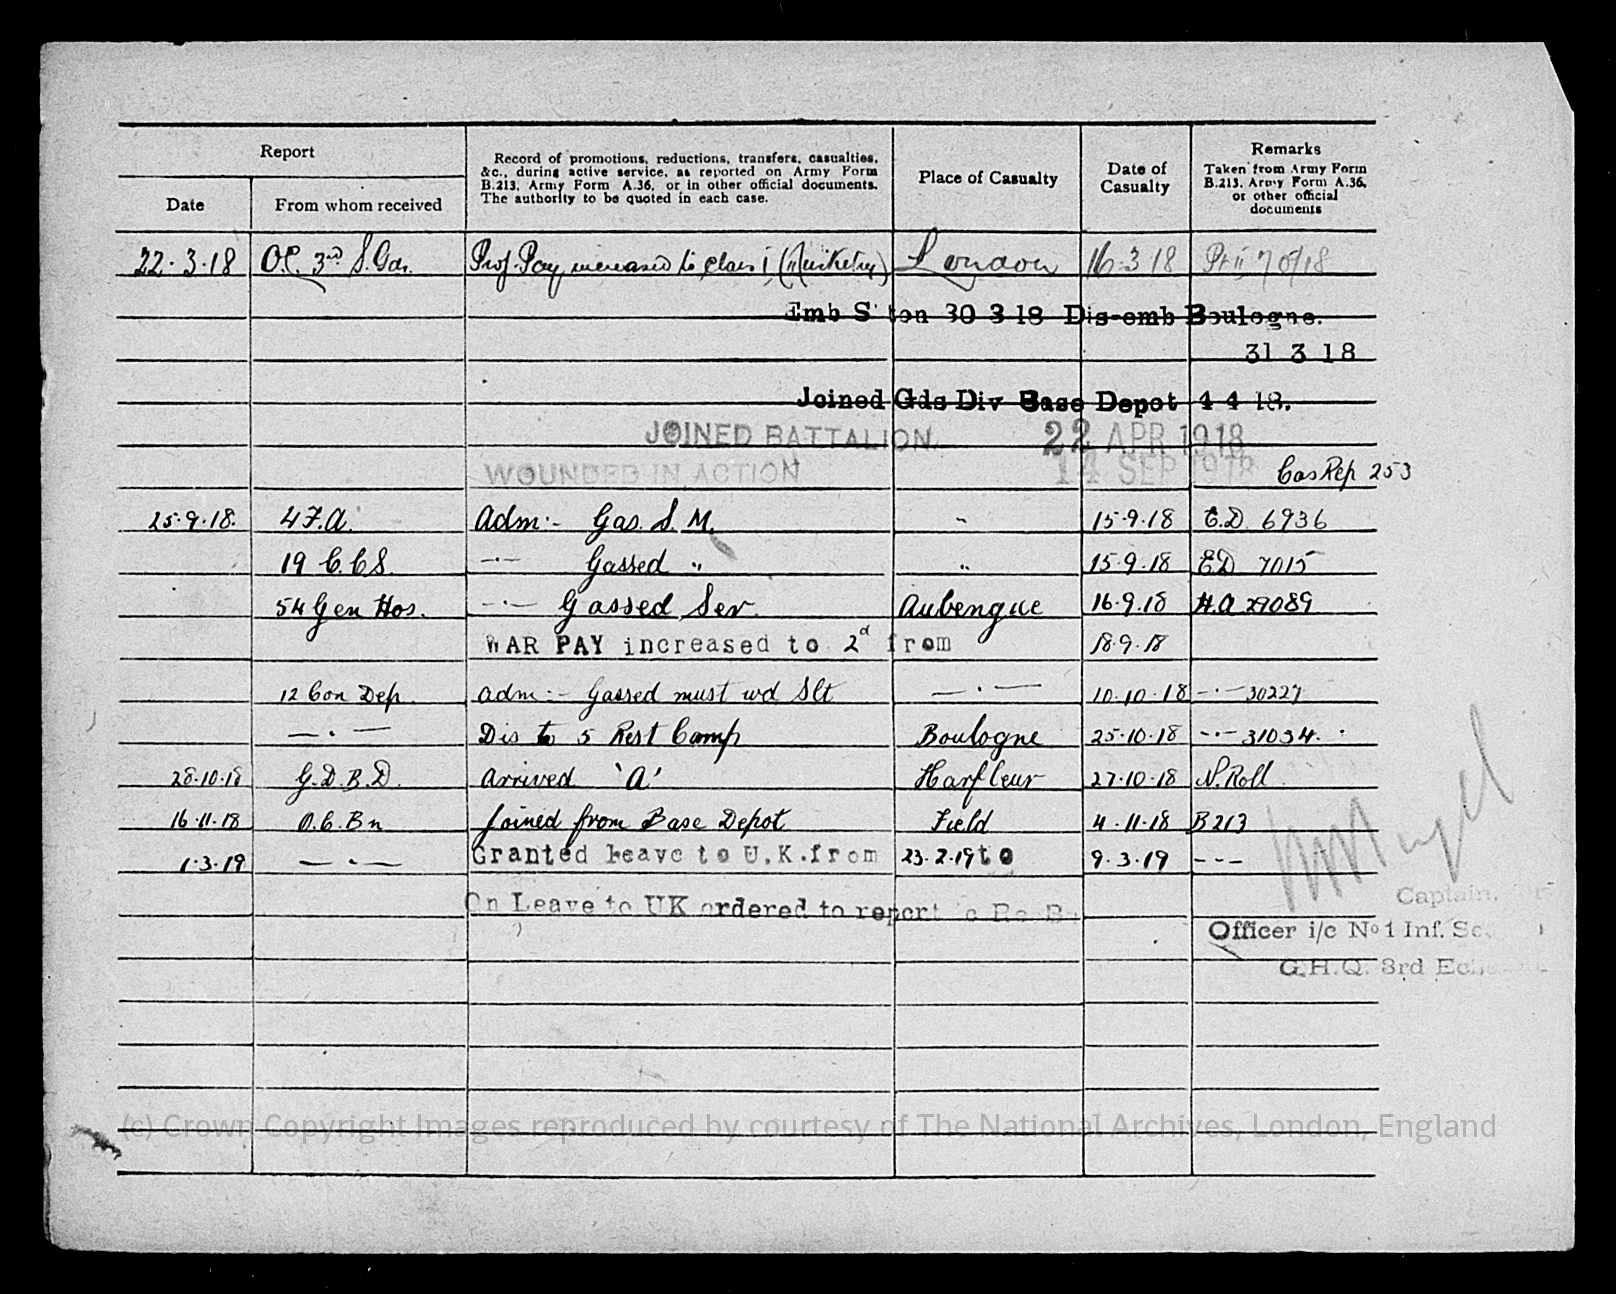 Report
Record of promotions, reductions, transfers, casualties, &c., during active service, as reported on Army Form B.213, Army Form A.36, or in other official documents. The authority to be quoted in each case.
Place of Casualty
Date of Casualty
Remarks Taken from Army Form B.213, Army Form A.36, or other official documents
Date
From whom received
22.3.18 O.C. 3rd S.Gds. Prof. Pay increased to class i (Musketry) London 16.3.18 Pt ii 70/18
Emb S'ton 30 3 18 Dis-emb Boulogne.
31 3 18
Joined Gds Div Base Depot 4 4 18.
JOINED BATTALION. 22 APR 1918
WOUNDED IN ACTION 14 SEP 1918 Cas Rep 253
25.9.18. 4 F.A. Adm:- Gas. S. M. " 15.9.18 E.D. 6936
19 C.C.S. -·- Gassed " " 15.9.18 ED 7015
54 Gen Hos. -·- Gassed Sev. Aubengue 16.9.18 H.A 29089
WAR PAY increased to 2d from 18.9.18
12 Con Dep. adm:- Gassed must wd Slt -·- 10.10.18 -·- 30227
-·- Dis to 5 Rest Camp Boulogne 25.10.18 -·- 31034.
28.10.18 G.D.B.D. arrived 'A' Harfleur 27.10.18 N.Roll
16.11.18 O.C. Bn Joined from Base Depot Field 4.11.18 B213
1.3.19 -·- Granted leave to U.K. from 23.2.19 to 9.3.19 ---
On Leave to UK ordered to report
Captain.
Officer i/c No 1 Inf. Sec.
G.H.Q. 3rd Ech
(c) Crown Copyright Images reproduced by courtesy of The National Archives, London, England